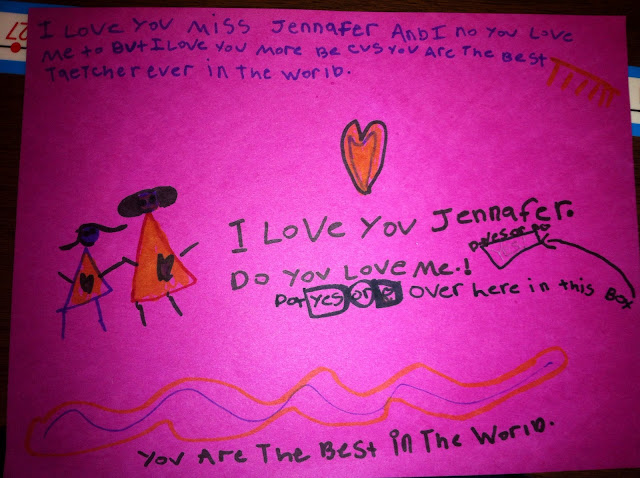 I Love You Miss Jennafer AnbI no You Love
Me to But I Love You More Be cus You Are The Best
Taetcher ever in The World.
I Love You Jennafer.
Do You Love Me.!
Dot yes or over here in this Box
You Are The Best in The World.
27